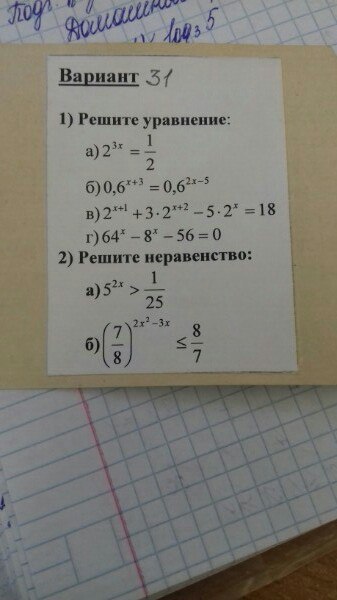 Домашн
log₃ 5
Вариант 31
1) Решите уравнение:
а) 2^{3x} = \frac{1}{2}
б) 0,6^{x+3} = 0,6^{2x-5}
в) 2^{x+1} + 3·2^{x+2} − 5·2^x = 18
г) 64^x − 8^x − 56 = 0
2) Решите неравенство:
а) 5^{2x} > \frac{1}{25}
б) (\frac{7}{8})^{2x^2−3x} ≤ \frac{8}{7}